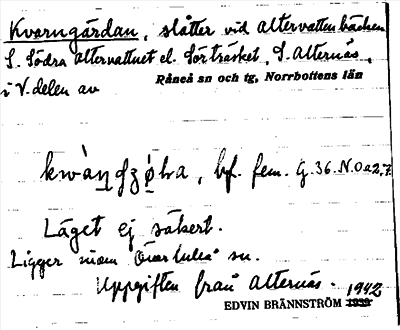 Kvarngärdan, slåtter vid Altervattenbäcken
S. Södra Altervattnet el. Sörträsket, S. Alternäs,
i V. delen av
Råneå sn och tg, Norrbottens län
bf. fem. G. 36. N.O a 2,7
Läget ej säkert.
Ligger inom Överluleå sn.
Uppgiften från Alternäs.
1942
EDVIN BRÄNNSTRÖM 1939